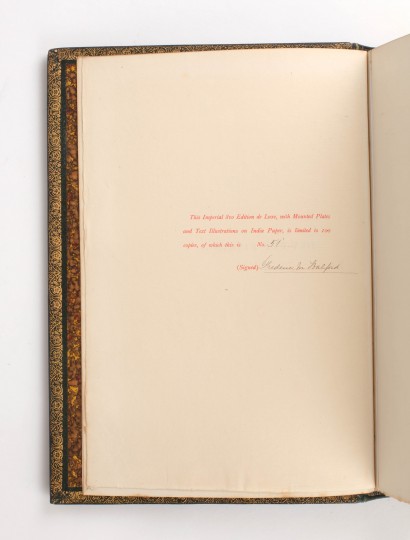 This Imperial 8vo Edition de Luxe, with Mounted Plates
and Text Illustrations on India Paper, is limited to 100
copies, of which this is No. 54
(Signed) Frederic M. Halford